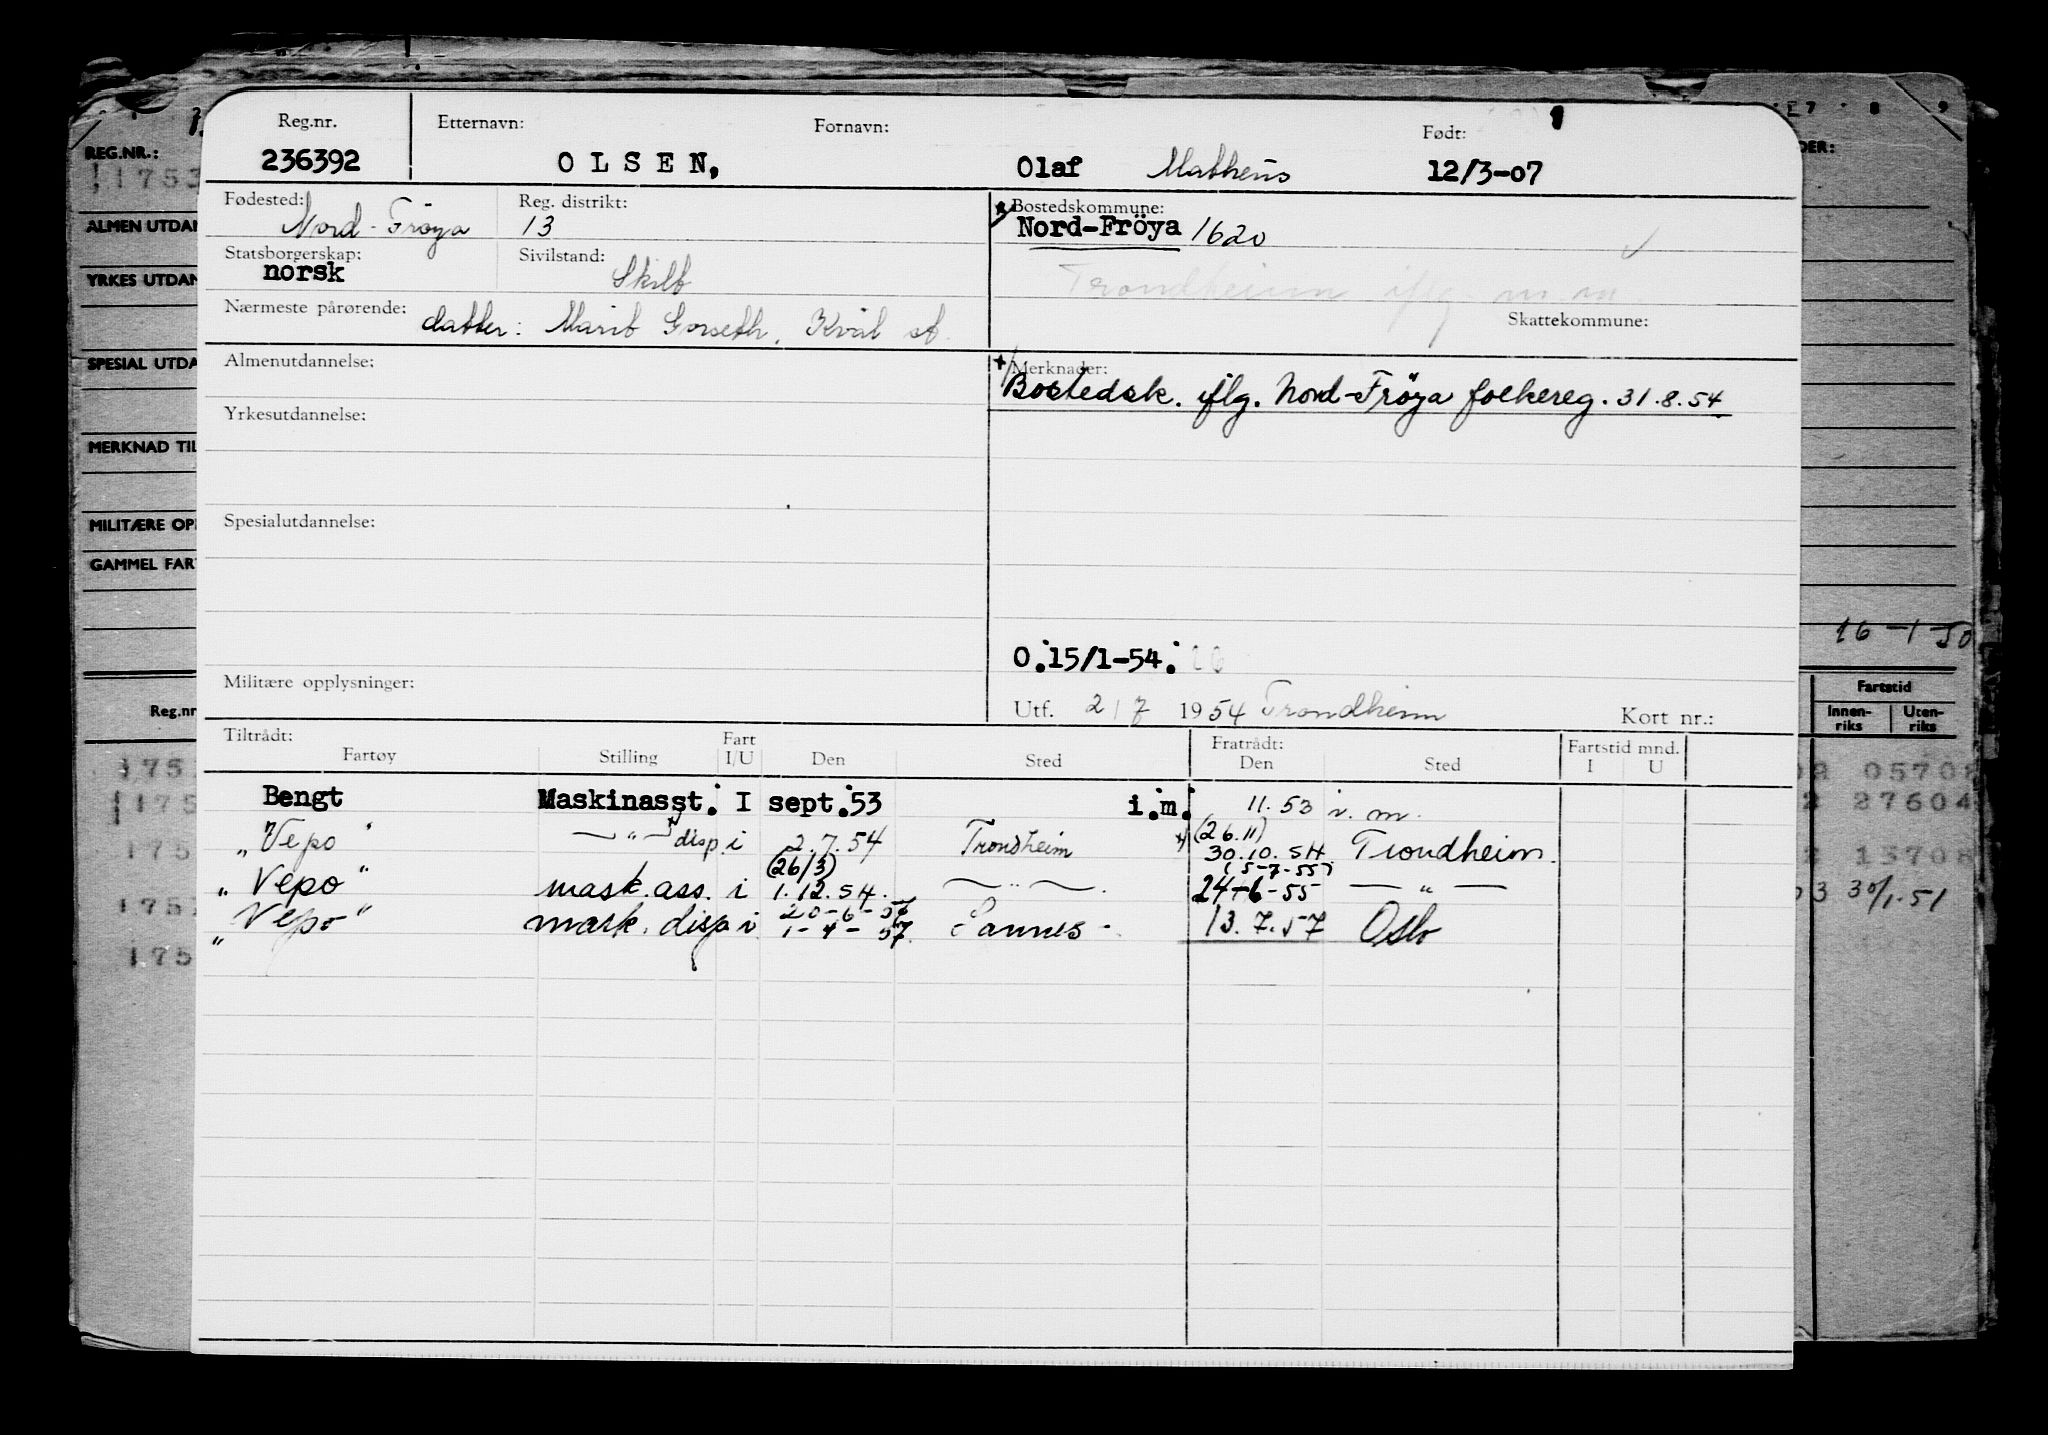 Reg.nr. Etternavn: Fornavn: Født:
236392 OLSEN, Olaf Matheus 12/3-07
Fødested: Nord-Fröya Reg. distrikt: 13 Bostedskommune: Nord-Fröya 1620
Statsborgerskap: norsk Sivilstand: Skilt
Trondheim iflg. m.m.
Nærmeste pårørende: datter: Marit Gorseth, Kvål st. Skattekommune:
Almenutdannelse: Merknader:
Bostedsk. iflg. Nord-Fröya folkereg. 31.8.54
Yrkesutdannelse:
Spesialutdannelse:
O.15/1-54.
Militære opplysninger: Utf. 2/7 1954 Trondheim Kort nr.:
Tiltrådt: Fart Fratrådt: Fartstid mnd.
Fartøy Stilling I/U Den Sted Den Sted I U
Bengt Maskinasst. I sept.53 i.m. 11.53 i.m.
(26.11)
"Vepo" — " — disp. i 2.7.54 Trondheim 30.10.54 Trondheim.
(26/3) (5-7-55)
"Vepo" mask.ass. i 1.12.54. — " — 24-6-55 — " —
20-6-56
"Vepo" mask. disp i 1-4-57 Sannes 13.7.57 Oslo
REG.NR.:
175
ALMEN UTDAN
YRKES UTDAN
SPESIAL UTDA
MERKNAD TIL
MILITÆRE OP
GAMMEL FAR
Reg.nr
175
175
175
175
175
7 8 9
DER:
16-1-50
Fartstid
Innen-riks Uten-riks
05708
2 27604
2 15708
03 30/1.51